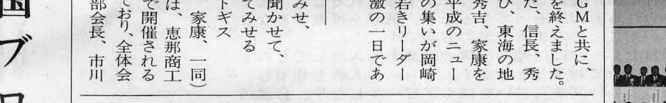 GMと共に、
を終えました。
た、信長、秀
び、東海の地
秀吉、家康を
平成のニュー
若きリーダー
の集いが岡崎
激の一日であ
みせ、
聞かせて、
てみせる
トギス
家康、一同)
は、恵那商工
で開催される
ており、全体会
部会長、市川
国ブロ